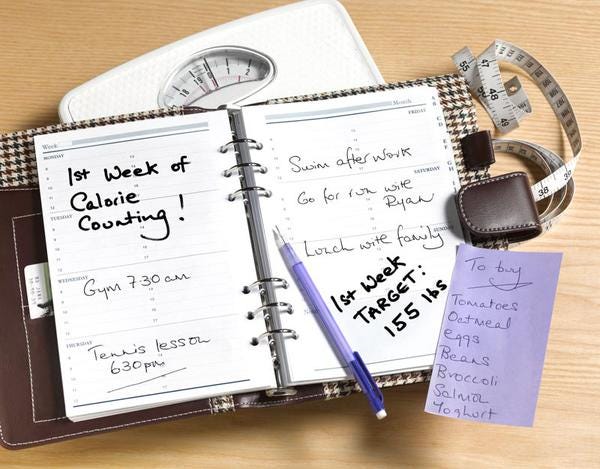 Week
MONDAY
1st Week of
Calorie
Counting!
TUESDAY
WEDNESDAY
Gym 7 30 am
THURSDAY
Tennis lesson
630pm
Month
FRIDAY
Swim after work
SATURDAY
Go for run with
Ryan
SUNDAY
Lunch with family
1st Week
TARGET:
155 lbs
To buy
Tomatoes
Oatmeal
eggs
Beans
Broccoli
Salmon
Yoghurt